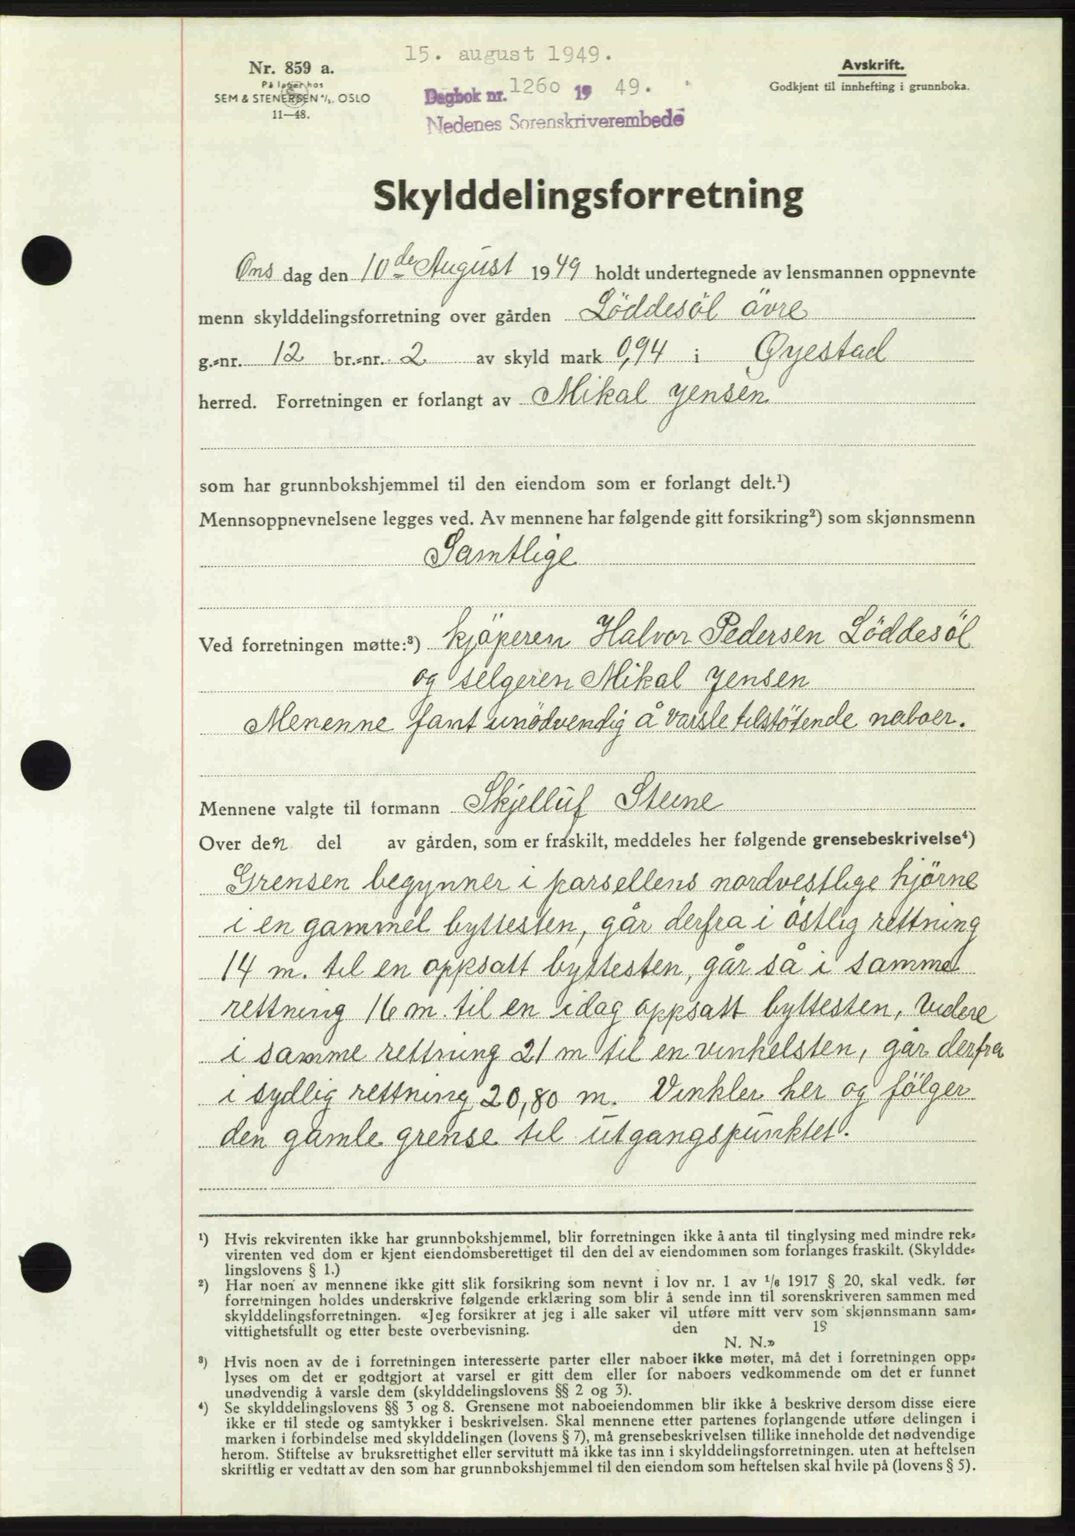 15. august 1949.
Nr. 859 a.
På lager hos
SEM & STENERSEN A/S. OSLO
11—48.
Dagbok nr. 1260 19 49.
Nedenes Sorenskriverembede
Avskrift.
Godkjent til innhefting i grunnboka.
Skylddelingsforretning
Ons dag den 10de August 1949 holdt undertegnede av lensmannen oppnevnte
menn skylddelingsforretning over gården Löddesöl övre
g.-nr. 12 br.-nr. 2 av skyld mark 0,94 i Øyestad
herred. Forretningen er forlangt av Mikal Jensen
som har grunnbokshjemmel til den eiendom som er forlangt delt.¹)
Mennsoppnevnelsene legges ved. Av mennene har følgende gitt forsikring²) som skjønnsmenn
Samtlige
Ved forretningen møtte:³) kjöperen Halvor Pedersen Löddesöl
og selgeren Mikal Jensen
Menenne fant unödvendig å varsle tilstötende naboer.
Mennene valgte til formann Skjelluf Stene
Over den del av gården, som er fraskilt, meddeles her følgende grensebeskrivelse⁴)
Grensen begynner i parsellens nordvestlige hjörne
i en gammel byttesten, går derfra i östlig rettning
14 m. til en oppsatt byttesten, går så i samme
rettning 16 m. til en idag oppsatt byttesten, videre
i samme rettning 21 m til en vinkelsten, går derfra
i sydlig rettning 20,80 m. Vinkler her og fölger
den gamle grense til utgangspunktet.
¹) Hvis rekvirenten ikke har grunnbokshjemmel, blir forretningen ikke å anta til tinglysing med mindre rek-
virenten ved dom er kjent eiendomsberettiget til den del av eiendommen som forlanges fraskilt. (Skyldde-
lingslovens § 1.)
²) Har noen av mennene ikke gitt slik forsikring som nevnt i lov nr. 1 av 1/6 1917 § 20, skal vedk. før
forretningen holdes underskrive følgende erklæring som blir å sende inn til sorenskriveren sammen med
skylddelingsforretningen. «Jeg forsikrer at jeg i alle saker vil utføre mitt verv som skjønnsmann sam-
vittighetsfullt og etter beste overbevisning. den 19
N. N.»
³) Hvis noen av de i forretningen interesserte parter eller naboer ikke møter, må det i forretningen opp-
lyses om det er godtgjort at varsel er gitt dem eller for naboers vedkommende om det er funnet
unødvendig å varsle dem (skylddelingslovens §§ 2 og 3).
⁴) Se skylddelingslovens §§ 3 og 8. Grensene mot naboeiendommen blir ikke å beskrive dersom disse eiere
ikke er til stede og samtykker i beskrivelsen. Skal mennene etter partenes forlangende utføre delingen i
marken i forbindelse med skylddelingen (lovens § 7), må grensebeskrivelsen tillike inneholde det nødvendige
herom. Stiftelse av bruksrettighet eller servitutt må ikke tas inn i skylddelingsforretningen. uten at heftelsen
skriftlig er vedtatt av den som har grunnbokshjemmel til den eiendom som heftelsen skal hvile på (lovens § 5).